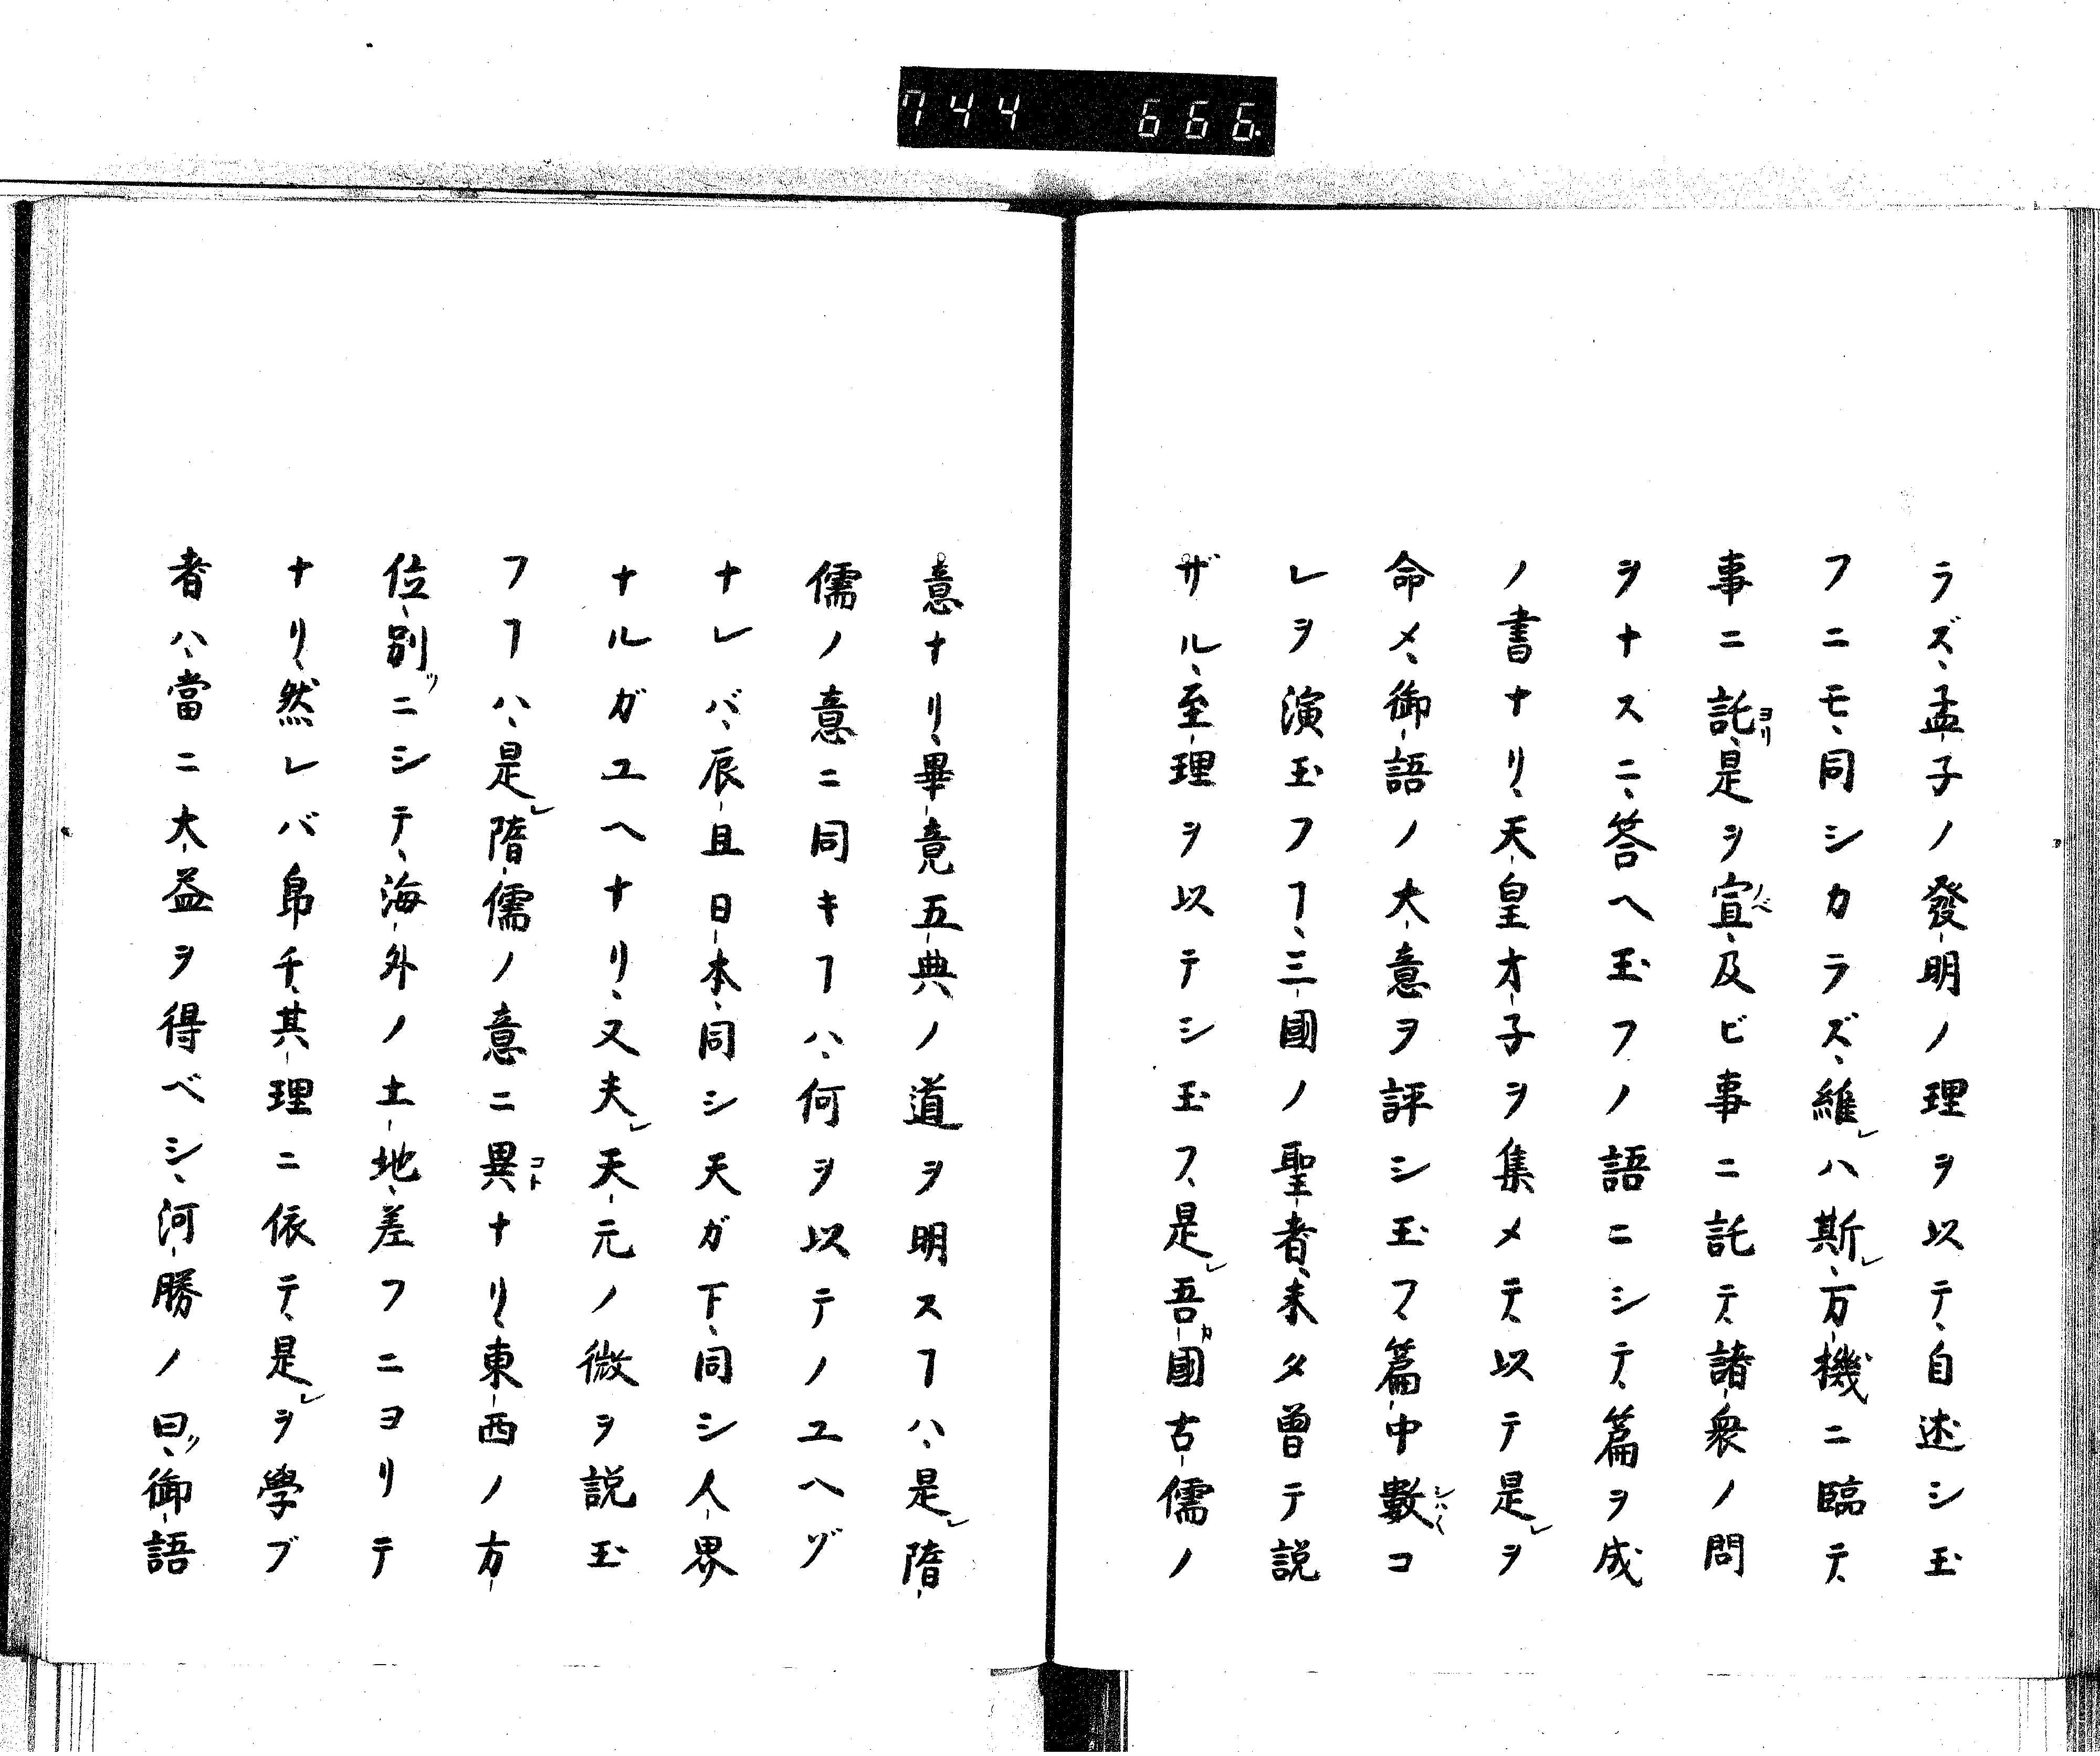 744 666.
ラズ、孟子ノ發明ノ理ヲ以テ、自述シ玉
フニモ、同シカラズ、維レハ斯レ、万機ニ臨テ、
事ニ託ヨリ、是ヲ宣ノベ、及ビ事ニ託テ、諸衆ノ問
ヲナスニ、答ヘ玉フノ語ニシテ、篇ヲ成
ノ書ナリ、天皇才子ヲ集メテ、以テ是レヲ
命メ、御語ノ大意ヲ評シ玉フ、篇中數シハ〱コ
レヲ演玉フヿ、三國ノ聖者、未タ曽テ説
ザル、至理ヲ以テシ玉フ、是レ吾カ國古儒ノ
意ナリ、畢竟五典ノ道ヲ明スヿハ、是レ隋
儒ノ意ニ同キヿハ、何ヲ以テノユヘゾ
ナレバ、辰且日本、同シ天ガ下、同シ人界
ナルガユヘナリ、又夫レ天元ノ微ヲ説玉
フヿハ、是レ隋儒ノ意ニ異コトナリ、東西ノ方
位、別ツニシテ、海外ノ土地、差フニヨリテ
ナリ、然レバ帠チ、其理ニ依テ、是レヲ學ブ
者ハ、當ニ大益ヲ得ベシ、河勝ノ曰ク、御語